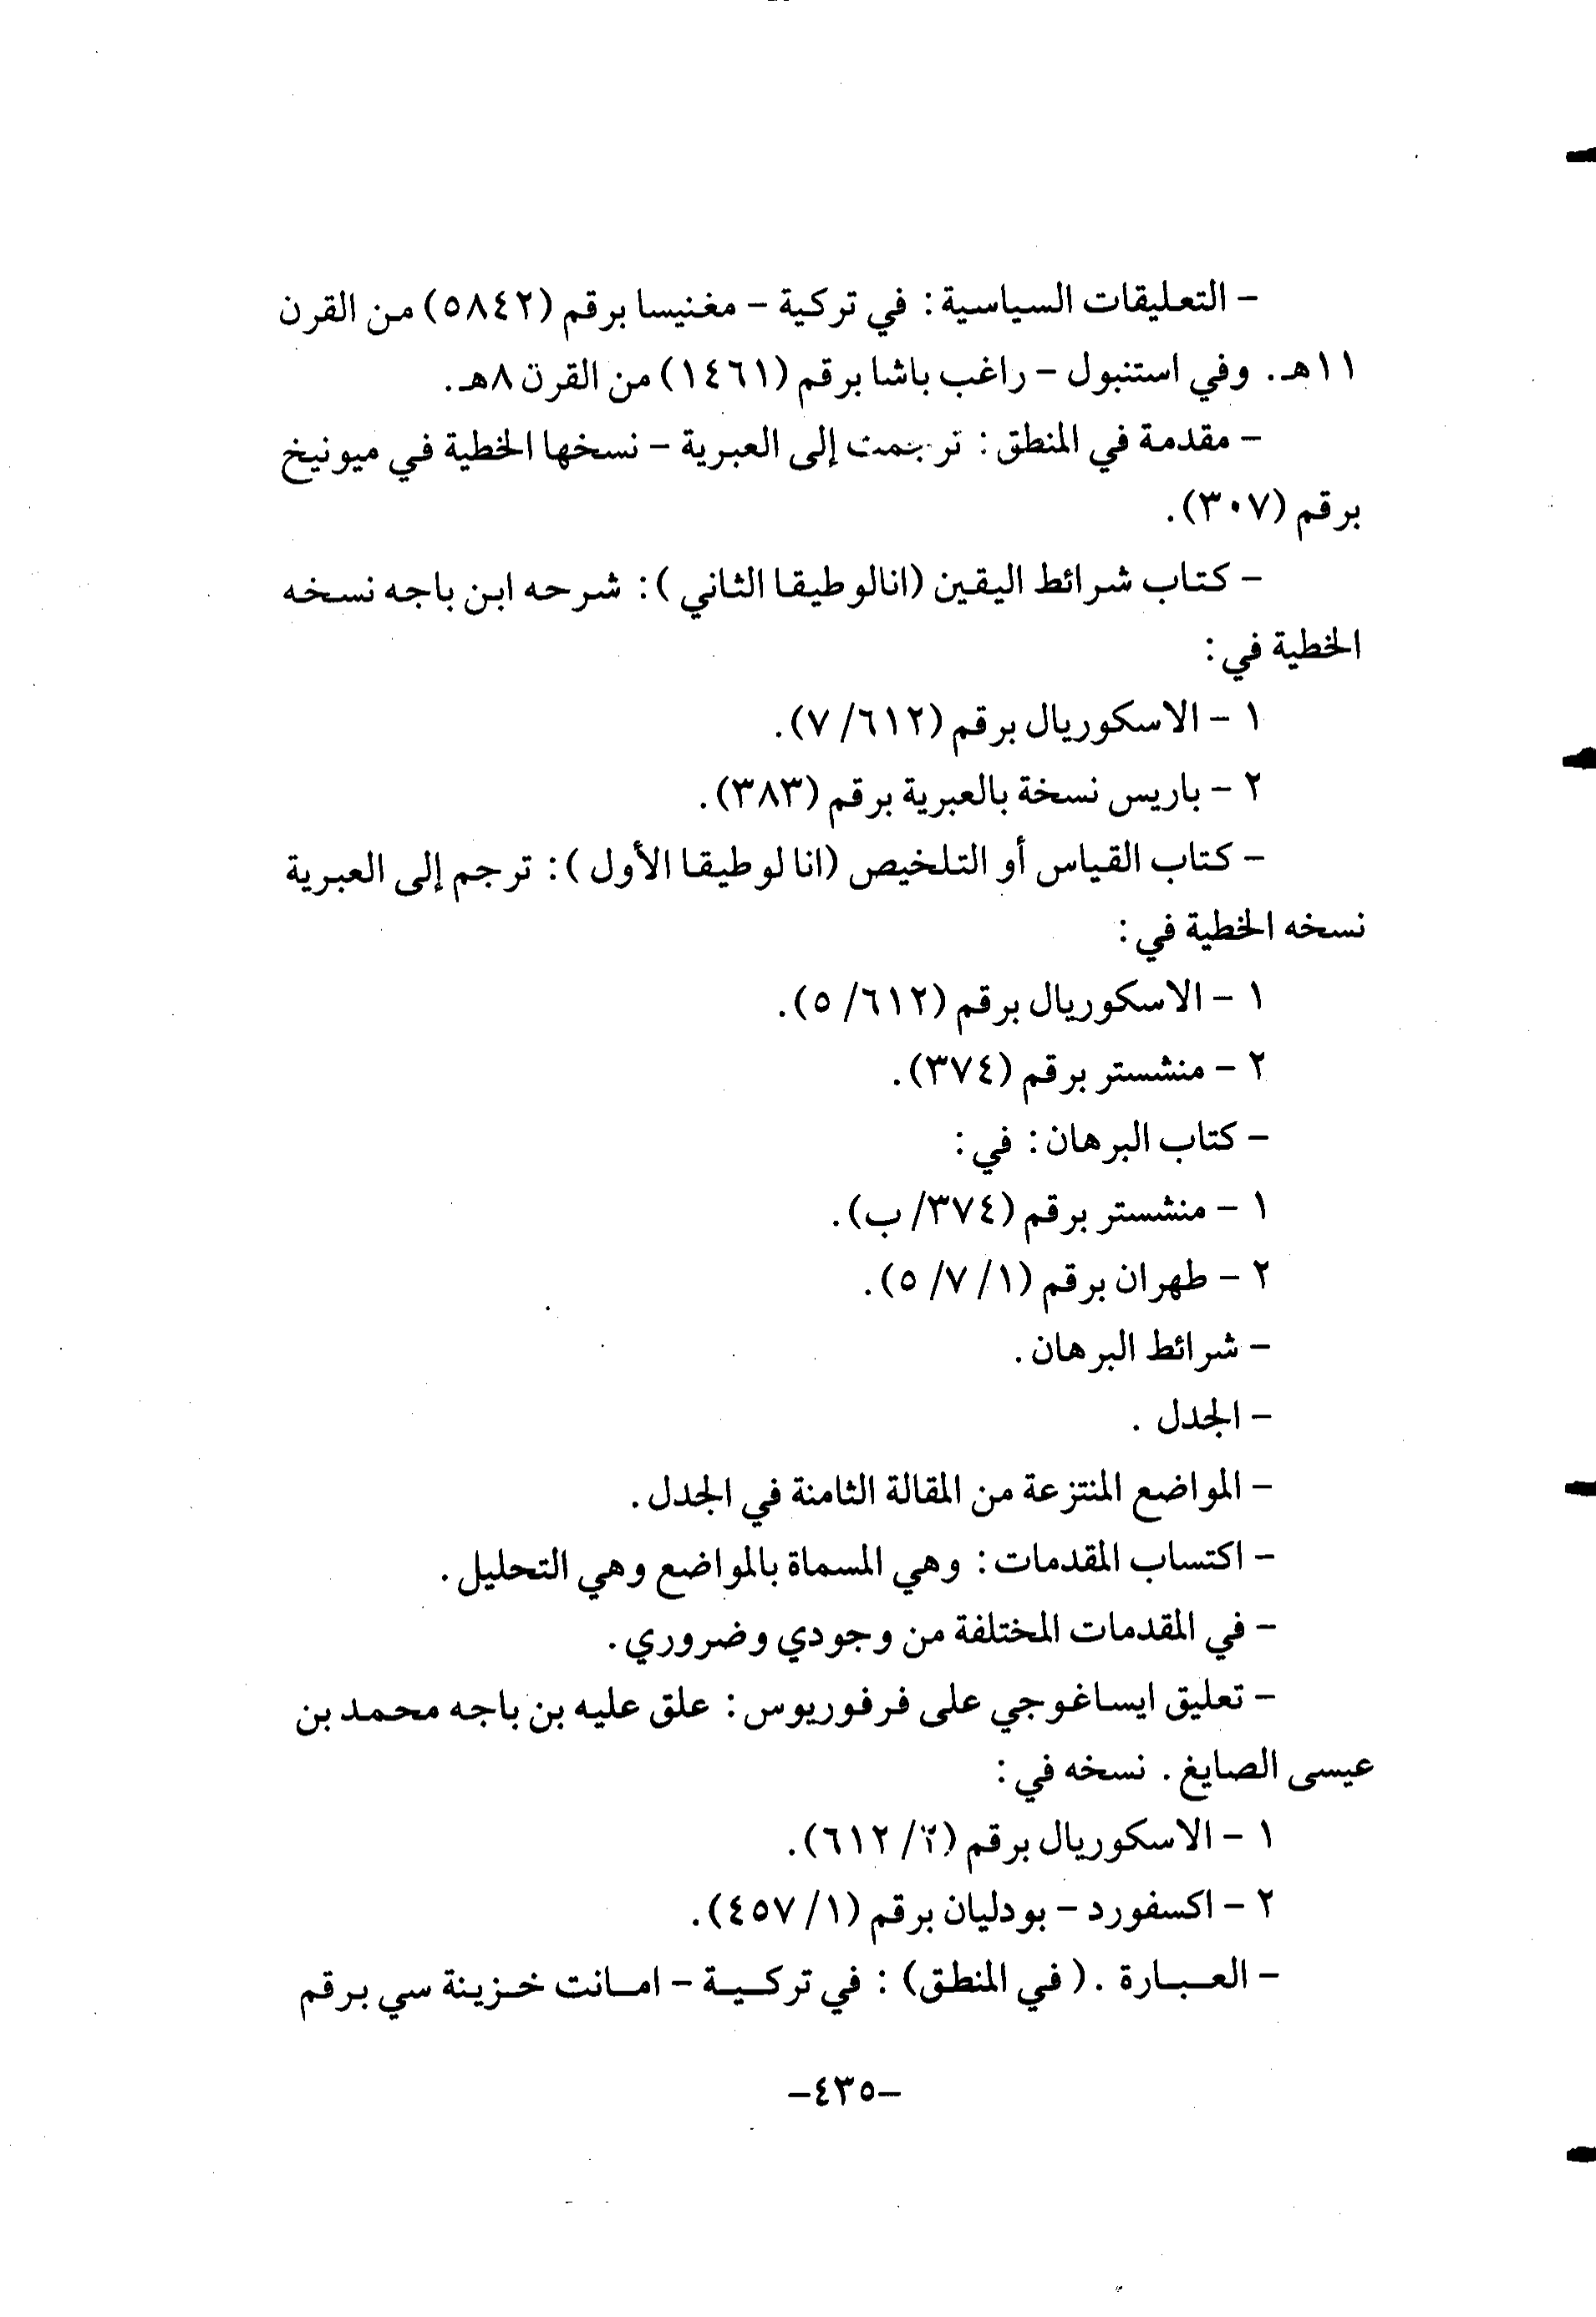 - التعليقات السياسية: في تركية - مغنيسا برقم (٥٨٤٢) من القرن
١١هـ. وفي استنبول - راغب باشا برقم (١٤٦١) من القرن ٨هـ.
- مقدمة في المنطق: ترجمت إلى العبرية - نسخها الخطية في ميونيخ
برقم (٣٠٧).
- كتاب شرائط اليقين (انالوطيقا الثاني): شرحه ابن باجه نسخه
الخطية في:
١ - الاسكوريال برقم (٦١٢/ ٧).
٢ - باريس نسخة بالعبرية برقم (٣٨٣).
- كتاب القياس أو التلخيص (انا لوطيقا الأول): ترجم إلى العبرية
نسخه الخطية في:
١ - الاسكوريال برقم (٦١٢/ ٥).
٢ - منشستر برقم (٣٧٤).
- كتاب البرهان: في:
١ - منشستر برقم (٣٧٤/ ب).
٢ - طهران برقم (١/ ٧/ ٥).
- شرائط البرهان.
- الجدل.
- المواضع المنتزعة من المقالة الثامنة في الجدل.
- اكتساب المقدمات: وهي المسماة بالمواضع وهي التحليل.
- في المقدمات المختلفة من وجودي وضروري.
- تعليق ايساغوجي على فرفوريوس: علق عليه بن باجه محمد بن
عيسى الصايغ. نسخه في:
١ - الاسكوريال برقم (٢/ ٦١٢).
٢ - اكسفورد - بودليان برقم (١/ ٤٥٧).
- العبارة. (في المنطق): في تركية - امانت خزينة سي برقم
-٤٣٥-